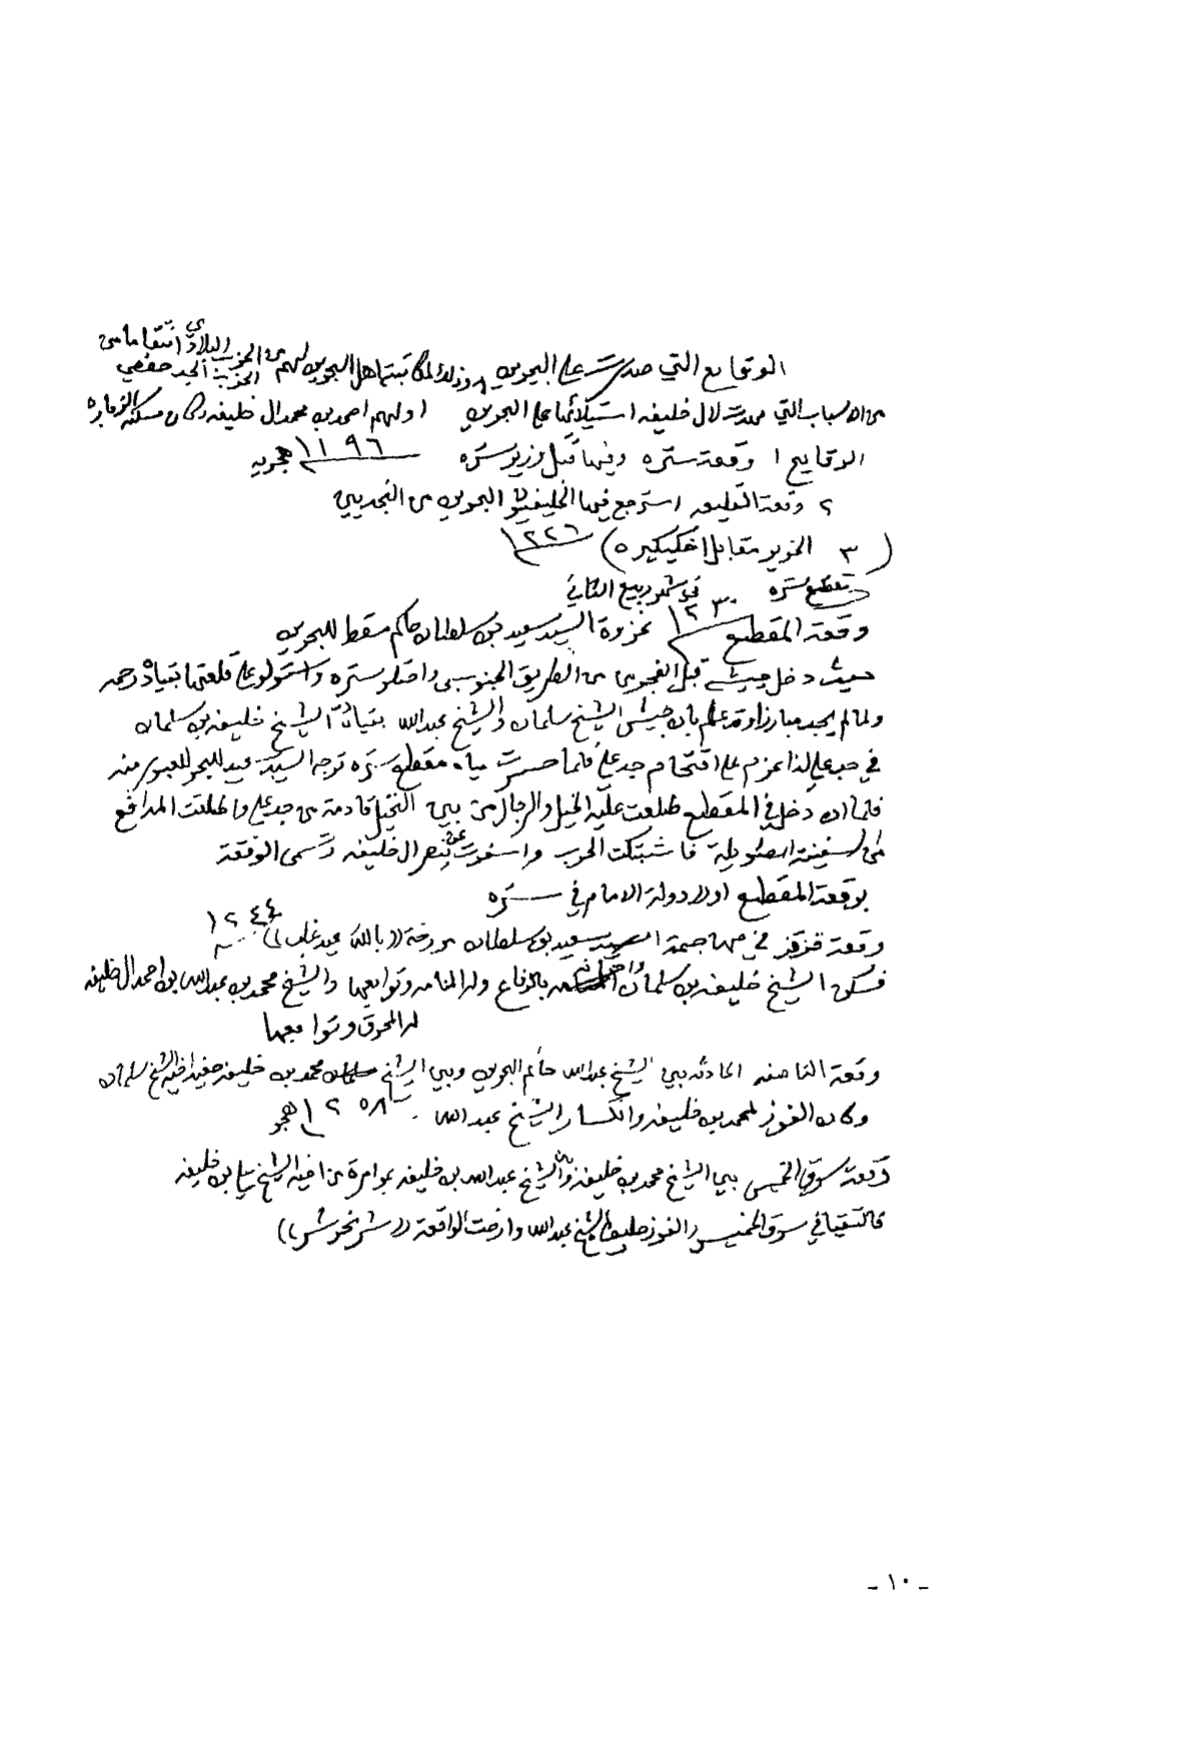 الوقايع التي صارت على البحرين وذلك لمكاتبت اهل البحرين لهم من الحزب البلادي انتقاما من
الحزبية الجد حفصي
من الاسباب التي مهدت لال خليفه استيلائها على البحرين اولهم احمد بن محمد ال خليفه وكان مسكنه الزباره
الوقايع ١ وقعة ستره وفيها قتل وزير ستره ١١٩٦ هجريه
٢ وقعة القليعه استرجع فيها الخليفيون البحرين من النجديين
(٣ الخوير مقابل اخكيكيره) ١٢٢٦
بمقطع ستره في شهر ربيع الثاني
وقعة المقطع ١٢٣٠ غزوة السيد سعيد بن سلطان حاكم مسقط للبحرين
حيث دخل جيشه قبل الفجر من الطريق الجنوبي واحتلو ستره واستولو على قلعتها بقيادة رحمه
ولما لم يجد مبارزا وقد علم بان جيش الشيخ سلمان والشيخ عبدالله بقيادة الشيخ خليفه بن سلمان
في جد علي لذا عزم على اقتحام جد علي فلما حسرت مياه مقطع ستره توجه السيد سعيد للبحر للعبور منه
فلما ان دخل في المقطع طلعت عليه الخيل والرجال من بين النخيل قادمة من جد علي واطلقت المدافع
من السفينة الطويلة فاشتبكت الحرب واسفرت عن نصر ال خليفه وتسمى الوقعة
بوقعة المقطع اولا دولة الامام في ستره
وقعة قزقز في مهاجمة السيد سعيد بن سلطان مورخة ((بالله عيد غلب)) ١٢٤٤
فسكن الشيخ خليفه بن سلمان واخوانه بالرفاع وله المنامه وتوابعها والشيخ محمد بن عبدالله بن احمد ال خليفه
له المحرق وتوابعها
وقعة الناصفه الحادثه بين الشيخ عبدالله حاكم البحرين وبين الشيخ محمد بن خليفه حفيد اخيه الشيخ سلمان
وكان الفوز لمحمد بن خليفه وانكسار الشيخ عبدالله ١٢٥٨ هجر
وقعة سوق الخميس بين الشيخ محمد بن خليفه والشيخ عبدالله بن خليفه بموامرة من اخيه الشيخ علي بن خليفه
فالتقيا في سوق الخميس والفوز حليف الشيخ عبدالله وارخت الواقعة ((شر نحوش))
- ١٠ -